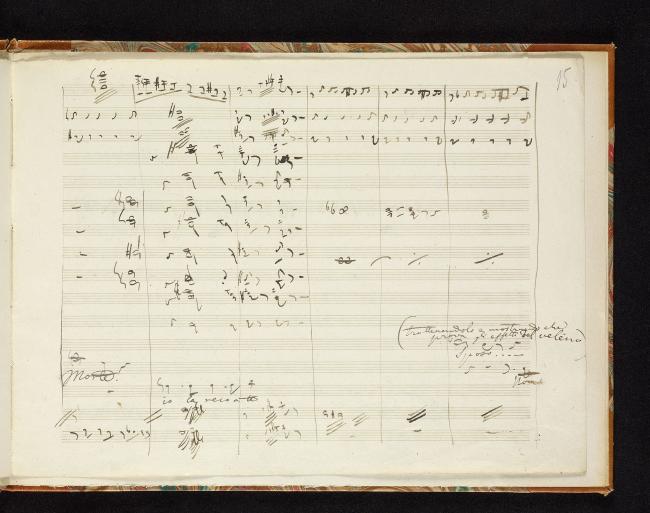 15
(trattenendolo e mostrando che
prova gli effetti del veleno)
Sposo
Morte!
io la reco a te